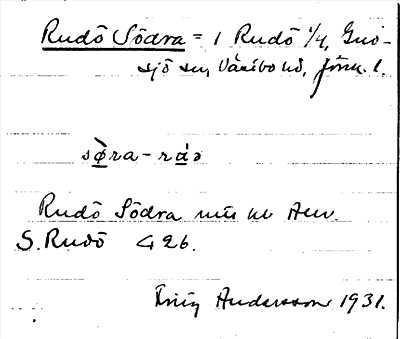 Rudö Södra = 1 Rudö 1/4, Gnosjö sn, Västbo hd, Jönk. l.
sø̀ra-ráə
Rudö Södra
S. Rudö G 26.
Andersson 1931.